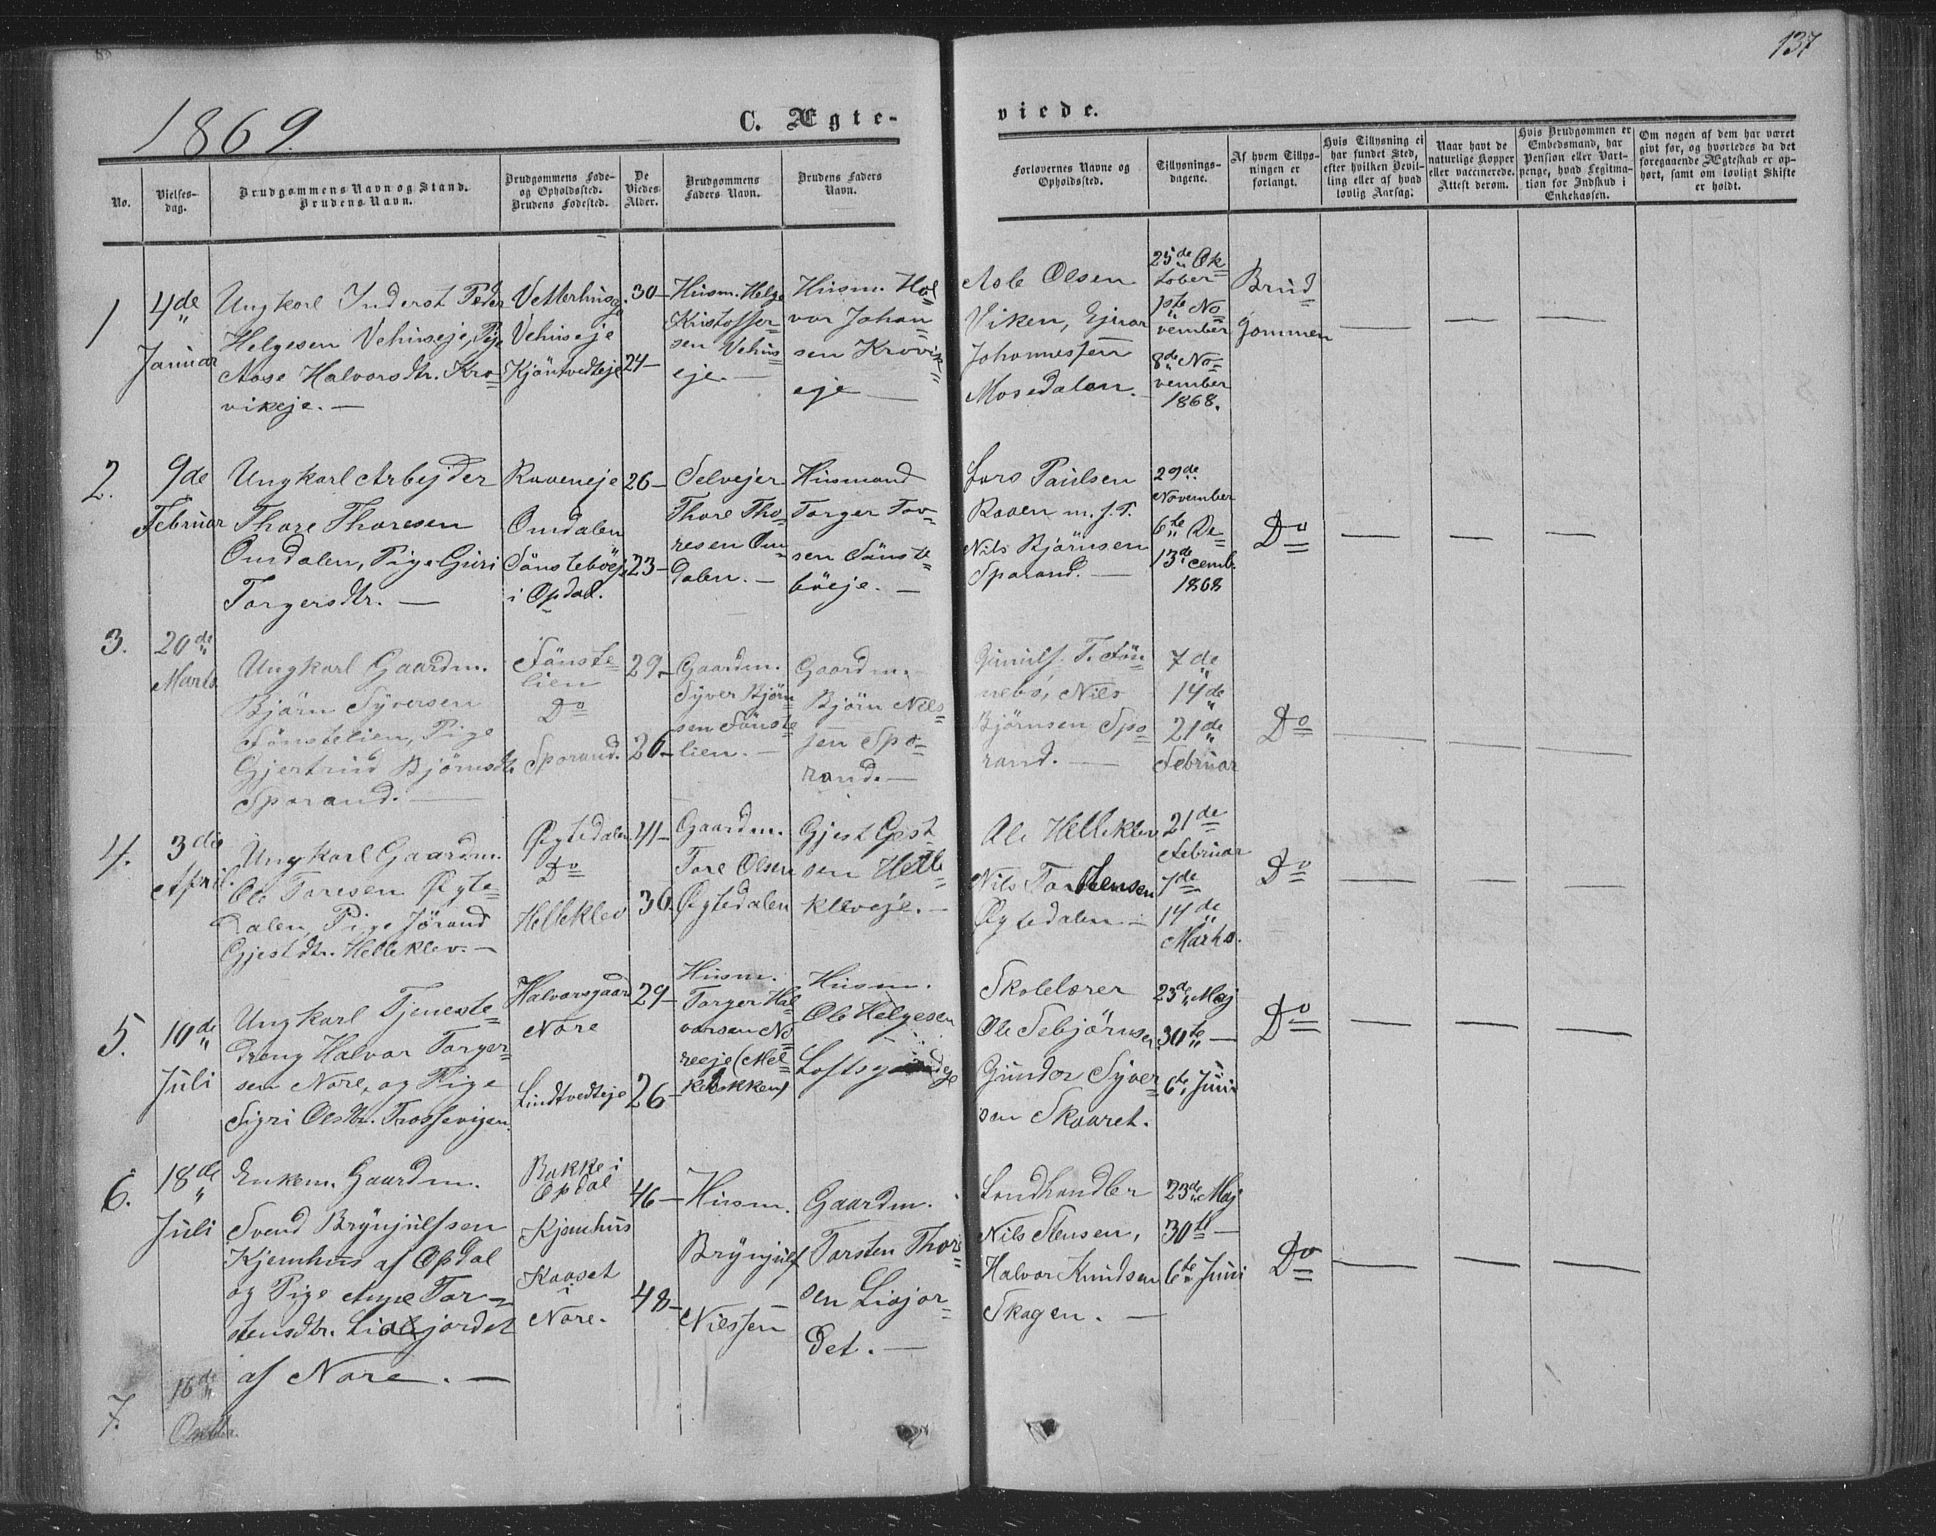 137
1869.
C. Ægte-
viede.
No.
Vielses-
dag.
Brudgommens Navn og Stand.
Brudens Navn.
Brudgommens Føde-
og Opholdssted.
Brudens Fødested.
De
Viedes
Alder.
Brudgommens
Faders Navn.
Brudens Faders
Navn.
Forlovernes Navne og
Opholdssted.
Tillysnings-
dagene.
Af hvem Tillys-
ningen er
forlangt.
Hvis Tillysning ei
har fundet Sted,
efter hvilken Bevil-
ling eller af hvad
lovlig Aarsag.
Naar havt de
naturlige Kopper
eller vaccinerede.
Attest derom.
Hvis Brudgommen er
Embedsmand, har
Pension eller Vart-
penge, hvad Legitima-
tion for Indskud i
Enkekassen.
Om nogen af dem har været
givt før, og hvorledes da det
foregaaende Ægteskab er op-
hørt, samt om lovligt Skifte
er holdt.
1
4de
Januar
Ungkarl Inderst Peder
Helgesen Vehuseje, Pige
Aase Halvorsdtr. Kro-
vikeje. —
Vehuseje
Kjöntvedteje
30—
24—
Husm. Helge
Kristoffer-
sen Vehus-
eje. —
Husm. Hal-
vor Johan-
sen Krovik-
eje —
Asle Olsen
Viken, Ejnar
Johannessen
Mosedalen. —
25de Ok-
tober
1ste No-
vember
8de No-
vember
1868.
Brud-
gommen
— — —
2.
9de
Februar
Ungkarl Arbejder
Thore Thoresen
Omdalen, Pige Guri
Torgersdtr. —
Raaeneje
Omdalen
Fönsteböeje
i Opdal.
26—
23—
Selvejer
Thore Tho-
resen Om-
dalen. —
Husmand
Torger Tov-
sen Fönste-
böeje. —
Lars Paulsen
Raaen m. f. T.
Nils Björnsen
Sporand. —
29de
November
6te De-
13de cemb.
1868
Do
— — —
3.
20de
Marts
Ungkarl Gaardm.
Björn Syversen
Fönstelien, Pige
Gjertrud Björnsdtr.
Sporand. —
Fönste-
lien
Do
Sporand.
29.—
26—
Gaardm.
Syver Björn-
sen Fönste-
lien. —
Gaardm.
Björn Nils-
sen Spo-
rand. —
Gunulf T. Fön-
nebö, Nils
Björnsen Spo-
rand. —
7de
14de
21de
Februar
Do
— — —
4.
3die
April.
Ungkarl Gaardm.
Ole Toresen Øygte-
dalen, Pige Jörand
Gjestdtr. Helleklev. —
Øygtedalen
Do
Helleklev
41—
30.
Gaardm.
Tore Olsen
Øygtedalen
Gjest Gjest-
sen Helle-
kleveje. —
Ole Helleklev
Nils Torstensen
Øygtedalen —
21de
Februar
7de
14de
Marts.
Do
— — —
5.
10de
Juli
Ungkarl Tjeneste-
dreng Halvor Torger-
sen Nore, og Pige
Sigri Olsdtr. Trossevigen.
Halvorsgaard
Nore
Lindtvedteje
29—
26—
Husm.
Torger Hal-
vorsen No-
reeje (Mel-
kebakken)
Husm.
Ole Helgesen
Loftsgaardeje
Skolelærer
Ole Sebjörnsen
Gunder Syver-
sen Skaaret.
23de Maj
30te —
6te Juni
Do
— — —
6.
18de
Juli
Enkem. Gaardm.
Svend Brynjulfsen
Kjemhus af Opdal
og Pige Anne Tor-
stensdtr. Liofjordet
af Nore. —
Bakke i
Opdal
Kjemhus
Kaaset
i
Nore.
46—
48—
Husm.
Brynjulf
Nilssen
Gaardm.
Torsten Thor-
sen Liojor-
det. —
Landhandler
Nils Stensen,
Halvor Knudsen
Skogen. —
23de Maj
30te —
6te Juni
Do
— — —
7.
16de